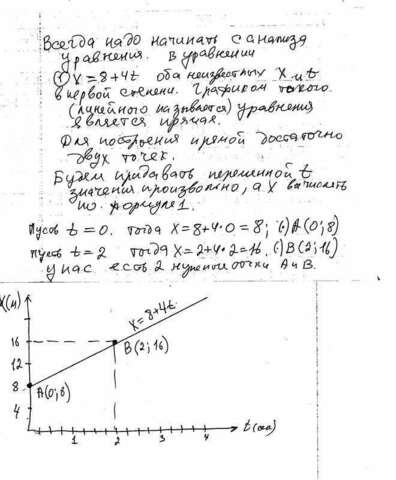 Всегда надо начинать с анализа
уравнения. в уравнении
① x = 8+4t оба неизвестных x и t
в первой степени. Графиком такого
(линейного называется) уравнения
является прямая.
Для построения прямой достаточно
двух точек.
Будем придавать переменной t
значения произвольно, а x вычислять
по формуле 1.
Пусть t = 0. тогда x = 8+4·0 = 8; (·) A(0;8)
пусть t = 2 тогда x = 2+4·2 = 16. (·) B(2;16)
у нас есть 2 нужные точки A и B.
X(м)
x = 8+4t
16
B(2;16)
12
8
A(0;8)
4
1 2 3 4
t(сек)